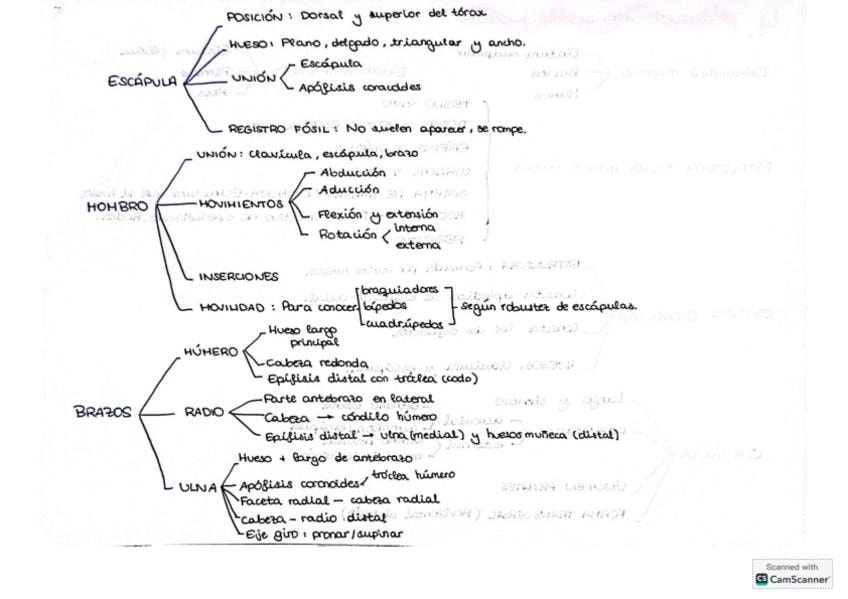 POSICIÓN : Dorsal y superior del tórax
HUESO: Plano, delgado, triangular y ancho.
ESCÁPULA
UNIÓN
Escápula
Apófisis coracoides
REGISTRO FÓSIL : No suelen aparecer, se rompe.
UNIÓN: clavícula, escápula, brazo
HOMBRO
MOVIMIENTOS
Abducción
Aducción
Flexión y extensión
Rotación
interna
externa
INSERCIONES
MOVILIDAD : Para conocer
braquiadores
bípedos
cuadrúpedos
según robustez de escápulas.
BRAZOS
HÚMERO
Hueso largo
principal
Cabeza redonda
Epífisis distal con tróclea (codo)
RADIO
Parte antebrazo en lateral
Cabeza → cóndilo húmero
Epífisis distal → ulna (medial) y huesos muñeca (distal)
ULNA
Hueso + largo de antebrazo
Apófisis coronoides
tróclea húmero
Faceta radial – cabeza radial
Cabeza – radio distal
Eje giro : pronar/supinar
Scanned with
CS CamScanner